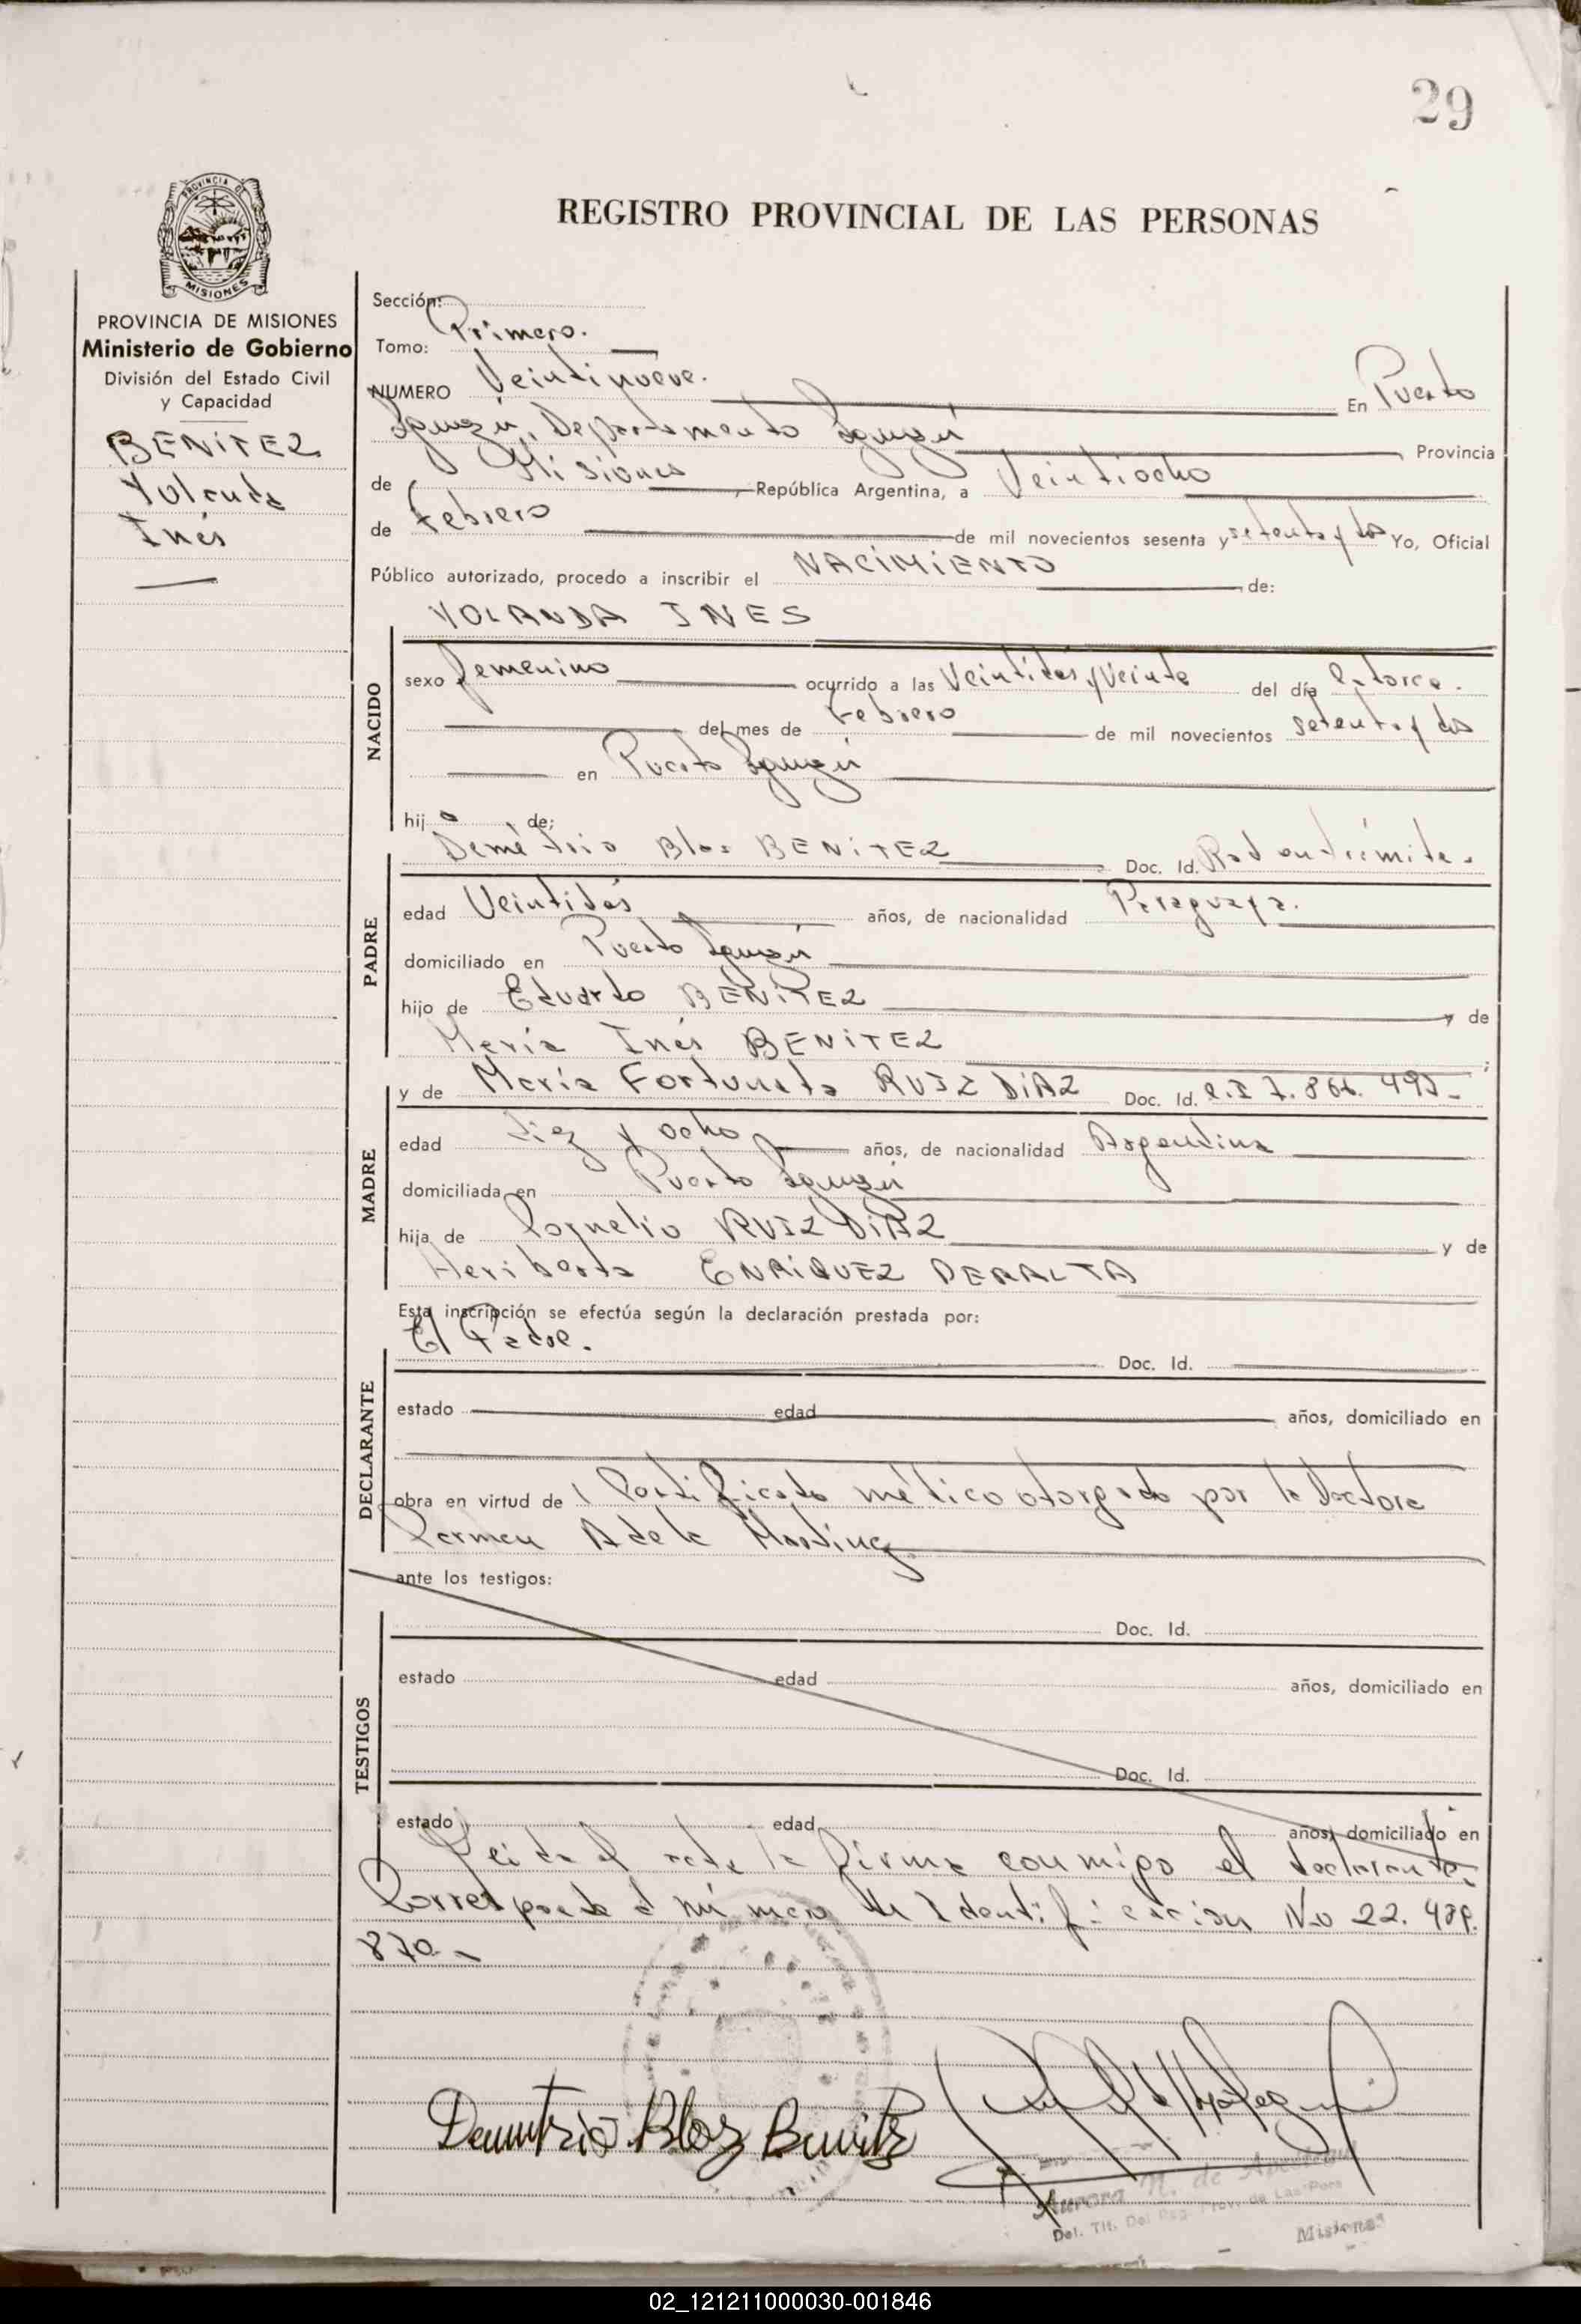 29
PROVINCIA DE
MISIONES
REGISTRO PROVINCIAL DE LAS PERSONAS
PROVINCIA DE MISIONES
Ministerio de Gobierno
División del Estado Civil
y Capacidad
BENITEZ
Yolanda
Inés
Sección:
Tomo: Primero.
NUMERO Veintinueve. En Puerto
Iguazú, Departamento Iguazú Provincia
de Misiones, República Argentina, a Veintiocho
de Febrero de mil novecientos sesenta y setenta y dos Yo, Oficial
Público autorizado, procedo a inscribir el NACIMIENTO de:
YOLANDA INES
NACIDO
sexo femenino ocurrido a las Veintidós y Veinte del día Catorce.
del mes de Febrero de mil novecientos setenta y dos
en Puerto Iguazú
hija de:
Demétrio Blas BENITEZ Doc. Id. Rad en trámite.
PADRE
edad Veintidós años, de nacionalidad Paraguaya.
domiciliado en Puerto Iguazú
hijo de Eduardo BENITEZ y de
María Inés BENITEZ ;
y de María Fortunata RUIZ DIAZ Doc. Id. C.I 7.866.
MADRE
edad diez y ocho años, de nacionalidad Argentina
domiciliada en Puerto Iguazú
hija de Cornelio RUIZ DIAZ y de
Heriberta ENRIQUEZ PERALTA
Esta inscripción se efectúa según la declaración prestada por:
El Padre.
Doc. Id.
DECLARANTE
estado edad años, domiciliado en
obra en virtud de Certificado médico otorgado por la Doctora
Carmen Adela
ante los testigos:
Doc. Id.
TESTIGOS
estado edad años, domiciliado en
Doc. Id.
estado edad años, domiciliado en
Leida el acta la firma conmigo el declarante.
Corresponde el número de Identificación No 22. 489.
870.-
Demetrio Blas Benitez
Aurora M. de
Del. Tit. Del Reg. Prov. de Las Pers
Misiones
02_121211000030-001846